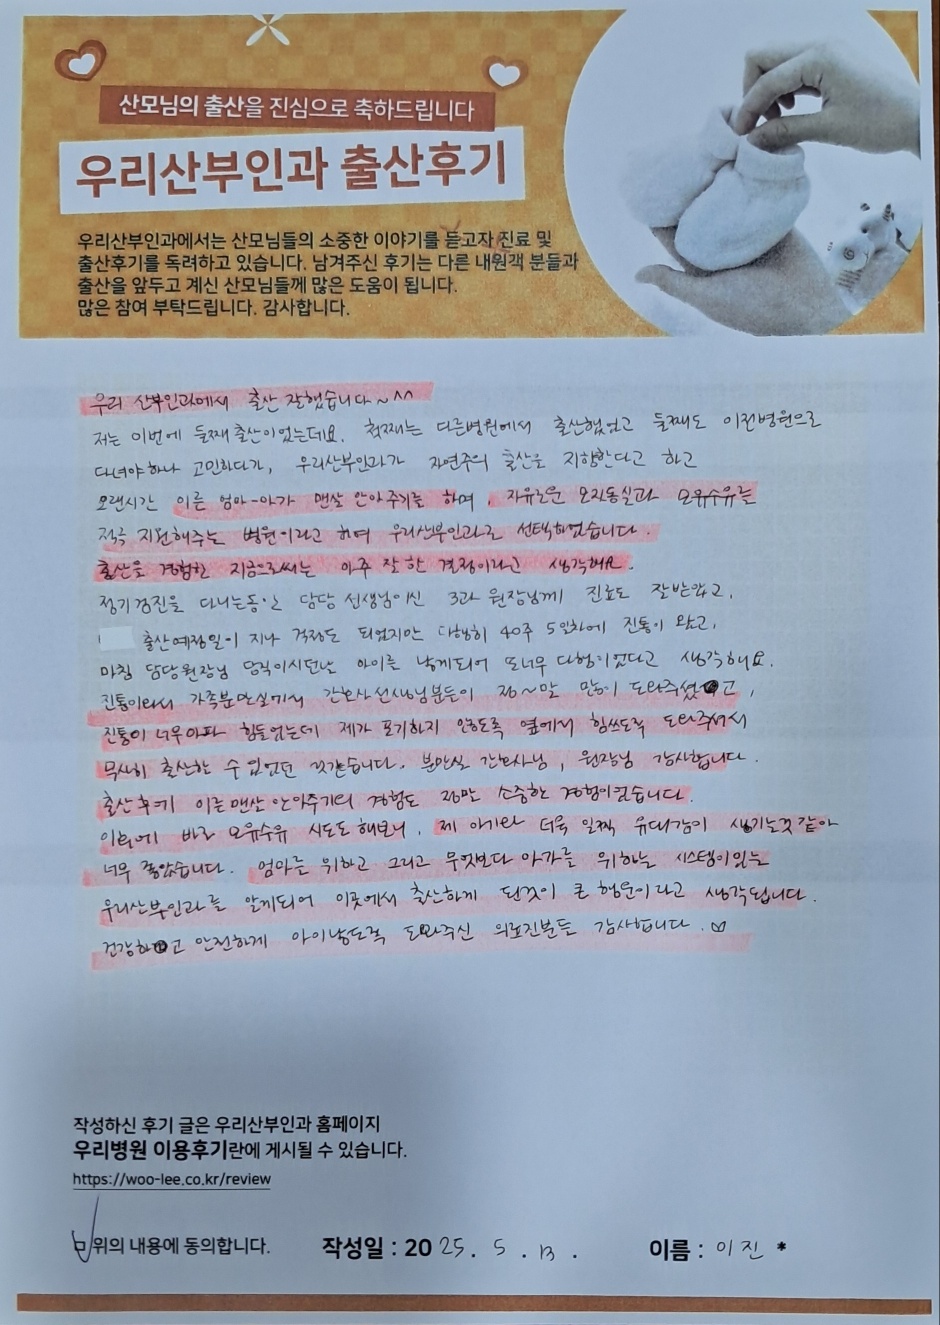 산모님의 출산을 진심으로 축하드립니다
우리산부인과 출산후기
우리산부인과에서는 산모님들의 소중한 이야기를 듣고자 진료 및
출산후기를 독려하고 있습니다. 남겨주신 후기는 다른 내원객 분들과
출산을 앞두고 계신 산모님들께 많은 도움이 됩니다.
많은 참여 부탁드립니다. 감사합니다.
우리 산부인과에서 출산 잘했습니다~^^
저는 이번에 둘째출산이었는데요. 첫째는 다른병원에서 출산했었고 둘째도 이전병원으로
다녀야하나 고민하다가, 우리산부인과가 자연주의 출산을 지향한다고 하고
오랜시간 이른 엄마-아가 맨살 안아주기를 하며, 자유로운 모자동실과 모유수유를
적극 지원해주는 병원이라고 하여 우리산부인과로 선택하였습니다.
출산을 경험한 지금으로써는 아주 잘한 결정이라고 생각해요.
정기검진을 다니는동안 담당 선생님이신 3과 원장님께 진료도 잘받았고,
출산예정일이 지나 걱정도 되었지만 다행히 40주 5일차에 진통이 왔고,
마침 담당원장님 당직이시던날 아이를 낳게되어 또너무 다행이었다고 생각해요.
진통이와서 가족분만실에서 간호사선생님분들이 정~말 많이 도와주셨고,
진통이 너무아파 힘들었는데 제가 포기하지 않도록 옆에서 힘쓰도록 도와주셔서
무사히 출산할 수 있었던 것같습니다. 분만실 간호사님, 원장님 감사합니다.
출산후에 이른맨살 안아주기의 경험도 정말 소중한 경험이었습니다.
이후에 바로 모유수유 시도도 해보니, 제 아기와 더욱 일찍 유대감이 생기는것 같아
너무 좋았습니다. 엄마를 위하고 그리고 무엇보다 아가를 위하는 시스템이있는
우리산부인과를 알게되어 이곳에서 출산하게 된것이 큰 행운이라고 생각됩니다.
건강하고 안전하게 아이낳도록 도와주신 의료진분들 감사합니다.
작성하신 후기 글은 우리산부인과 홈페이지
우리병원 이용후기란에 게시될 수 있습니다.
https://woo-lee.co.kr/review
위의 내용에 동의합니다. 작성일 : 2025. 5. 13. 이름 : 이진 *